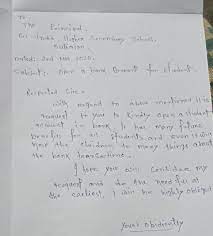 To
The Principal,
Higher Secondary School,
Dated: 2nd Jan, 2020.
Subject: Open a bank account for student.
Respected Sir,
With respect to above mentioned
request to you to kindly open a student
account in bank. It has many future
benefits for all students and even it will
the children to many things about
the bank transactions.
I hope you will consider my
request and do the needful at
the earliest, I will be highly obliged
Yours obediently